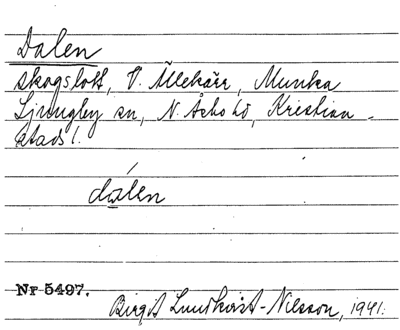 Dalen
skogslott, V. Ällekärr, Munka
Ljungby sn, N. Åsbo hd, Kristian-
stads l.
dálen
Nr 5497.
Birgit Lundkvist-Nilsson, 1941.